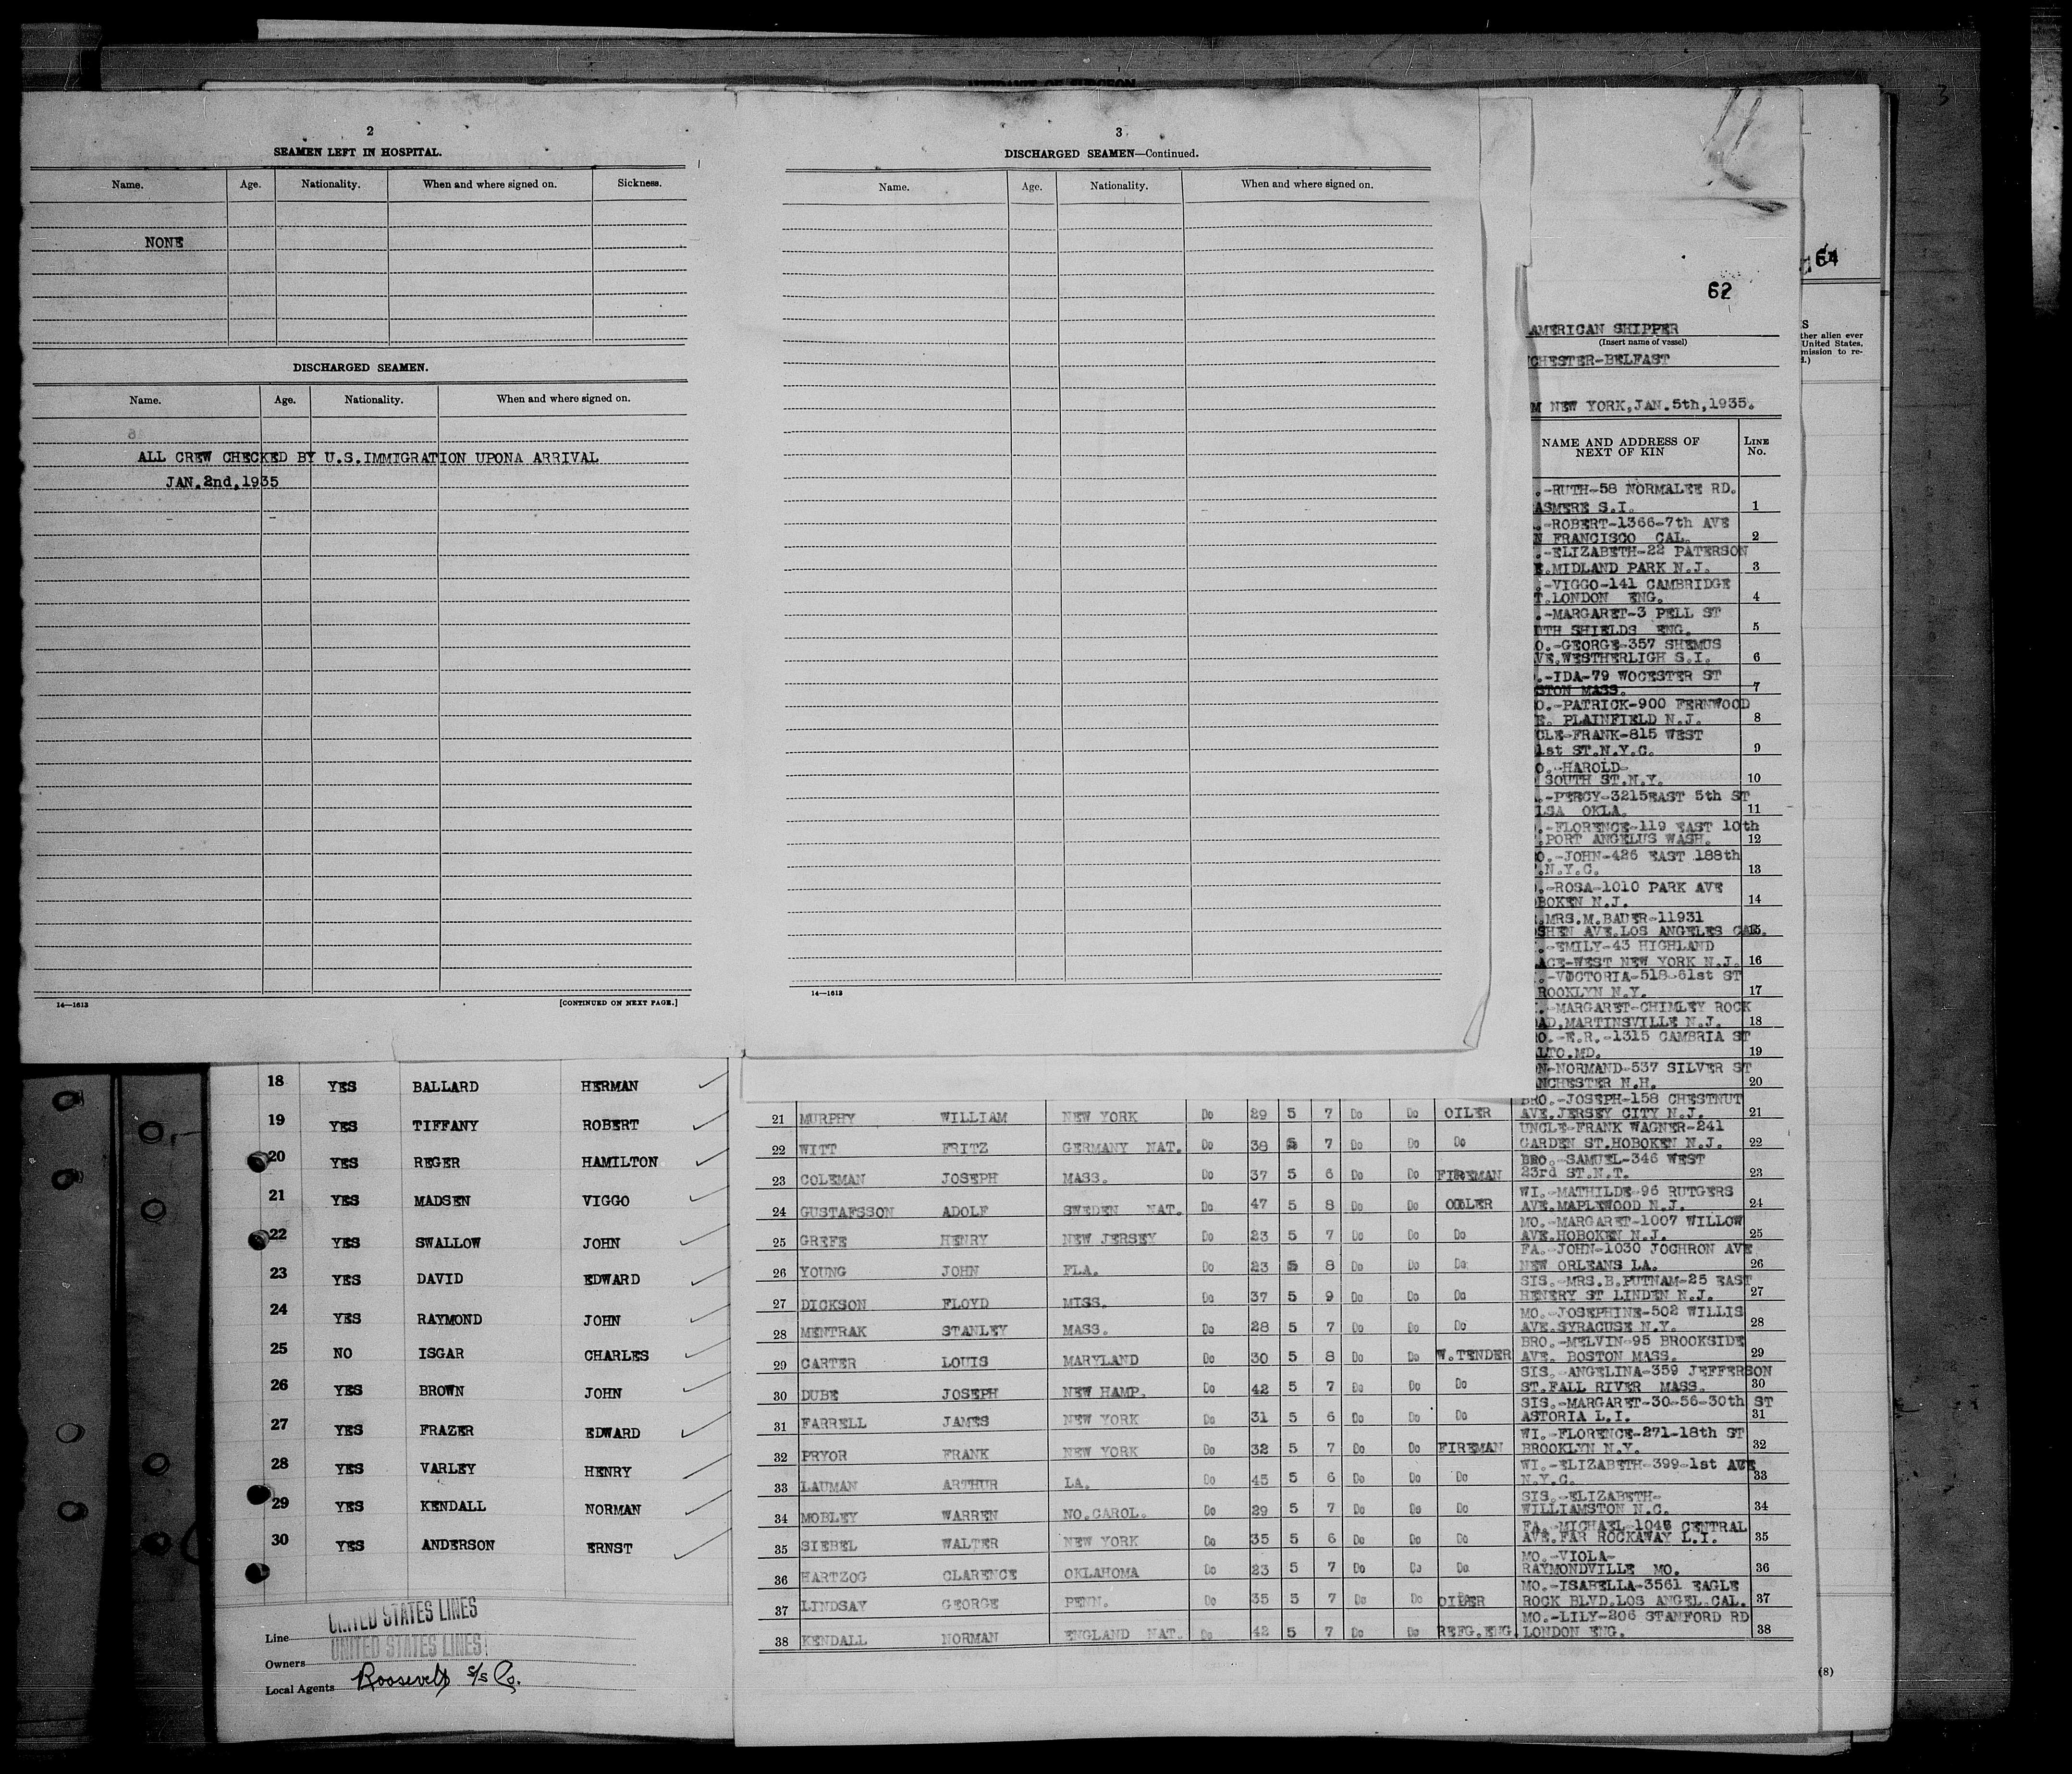 2
SEAMEN LEFT IN HOSPITAL.
Name. Age. Nationality. When and where signed on. Sickness.
NONE
DISCHARGED SEAMEN.
Name. Age. Nationality. When and where signed on.
ALL CREW CHECKED BY U.S.IMMIGRATION UPONA ARRIVAL
JAN.2nd,1935
14—1613 [CONTINUED ON NEXT PAGE.]
3
DISCHARGED SEAMEN—Continued.
Name. Age. Nationality. When and where signed on.
14—1613
62
AMERICAN SHIPPER
(Insert name of vessel)
CHESTER-BELFAST
M NEW YORK,JAN.5th,1935.
NAME AND ADDRESS OF NEXT OF KIN LINE No.
.-RUTH-58 NORMALEE RD.
ASMERE S.I. 1
.-ROBERT-1366-7th AVE
N FRANCISCO CAL. 2
.-ELIZABETH-22 PATERSON
E.MIDLAND PARK N.J. 3
.-VIGGO-141 CAMBRIDGE
T.LONDON ENG. 4
.-MARGARET-3 PELL ST
UTH SHIELDS ENG. 5
O.-GEORGE-357 SHEMUS
VE.WESTHERLIGH S.I. 6
.-IDA-79 WOCESTER ST
STON MASS. 7
O.-PATRICK-900 FERNWOOD
E. PLAINFIELD N.J. 8
CLE-FRANK-815 WEST
1st ST.N.Y.C. 9
O.-HAROLD-
SOUTH ST.N.Y. 10
.-PERCY-3215EAST 5th ST
LSA OKLA. 11
.-FLORENCE-119 EAST 10th
.PORT ANGELUS WASH. 12
O.-JOHN-426 EAST 188th
.N.Y.C. 13
.-ROSA-1010 PARK AVE
BOKEN N.J. 14
.MRS.M.BAUER-11931
SHEN AVE.LOS ANGELES CAL. 15
.-EMILY-43 HIGHLAND
ACE-WEST NEW YORK N.J. 16
.-VOCTORIA-518-61st ST
ROOKLYN N.Y. 17
.-MARGARET-CHIMLEY ROCK
AD.MARTINSVILLE N.J. 18
O.-E.R.-1315 CAMBRIA ST
LTO.MD. 19
N-NORMAND-537 SILVER ST
NCHESTER N.H. 20
64
S
ther alien ever
United States,
mission to re-
(8)
18 YES BALLARD HERMAN
19 YES TIFFANY ROBERT
20 YES REGER HAMILTON
21 YES MADSEN VIGGO
22 YES SWALLOW JOHN
23 YES DAVID EDWARD
24 YES RAYMOND JOHN
25 NO ISGAR CHARLES
26 YES BROWN JOHN
27 YES FRAZER EDWARD
28 YES VARLEY HENRY
29 YES KENDALL NORMAN
30 YES ANDERSON ERNST
Line UNITED STATES LINES
Owners UNITED STATES LINES
Local Agents Roosevelt S/S Co.
BRO.-JOSEPH-158 CHESTNUT
21 MURPHY WILLIAM NEW YORK Do 29 5 7 Do Do OILER AVE.JERSEY CITY N.J. 21
UNCLE-FRANK WAGNER-241
22 WITT FRITZ GERMANY NAT. Do 38 5 7 Do Do Do GARDEN ST.HOBOKEN N.J. 22
BRO.-SAMUEL-346 WEST
23 COLEMAN JOSEPH MASS. Do 37 5 6 Do Do FIREMAN 23rd ST.N.T. 23
WI.-MATHILDE-96 RUTGERS
24 GUSTAFSSON ADOLF SWEDEN NAT. Do 47 5 8 Do Do OILER AVE.MAPLEWOOD N.J. 24
MO.-MARGARET-1007 WILLOW
25 GREFE HENRY NEW JERSEY Do 23 5 7 Do Do Do AVE.HOBOKEN N.J. 25
FA.-JOHN-1030 JOCHRON AVE
26 YOUNG JOHN FLA. Do 23 5 8 Do Do Do NEW ORLEANS LA. 26
SIS.-MRS.B.PUTNAM-25 EAST
27 DICKSON FLOYD MISS. Do 37 5 9 Do Do Do HENERY ST LINDEN N.J. 27
MO.-JOSEPHINE-502 WILLIS
28 MENTRAK STANLEY MASS. Do 28 5 7 Do Do Do AVE.SYRACUSE N.Y. 28
BRO.-MELVIN-95 BROOKSIDE
29 CARTER LOUIS MARYLAND Do 30 5 8 Do Do W.TENDER AVE. BOSTON MASS. 29
SIS.-ANGELINA-359 JEFFERSON
30 DUBE JOSEPH NEW HAMP. Do 42 5 7 Do Do Do ST.FALL RIVER MASS. 30
SIS.-MARGARET-30-56-30th ST
31 FARRELL JAMES NEW YORK Do 31 5 6 Do Do Do ASTORIA L.I. 31
WI.-FLORENCE-271-18th ST
32 PRYOR FRANK NEW YORK Do 32 5 7 Do Do FIREMAN BROOKLYN N.Y. 32
WI.-ELIZABETH-399-1st AVE
33 LAUMAN ARTHUR LA. Do 45 5 6 Do Do Do N.Y.C. 33
SIS.-ELIZABETH-
34 MOBLEY WARREN NO.CAROL. Do 29 5 7 Do Do Do WILLIAMSTON N.C. 34
FA.-MICHAEL-1046 CENTRAL
35 SIEBEL WALTER NEW YORK Do 35 5 6 Do Do Do AVE.FAR ROCKAWAY L.I. 35
MO.-VIOLA-
36 HARTZOG CLARENCE OKLAHOMA Do 23 5 7 Do Do Do RAYMONDVILLE MO. 36
MO.-ISABELLA-3561 EAGLE
37 LINDSAY GEORGE PENN. Do 35 5 7 Do Do OILER ROCK BLVD.LOS ANGEL.CAL. 37
MO.-LILY-206 STANFORD RD
38 KENDALL NORMAN ENGLAND NAT. Do 42 5 7 Do Do REFG.ENG. LONDON ENG. 38